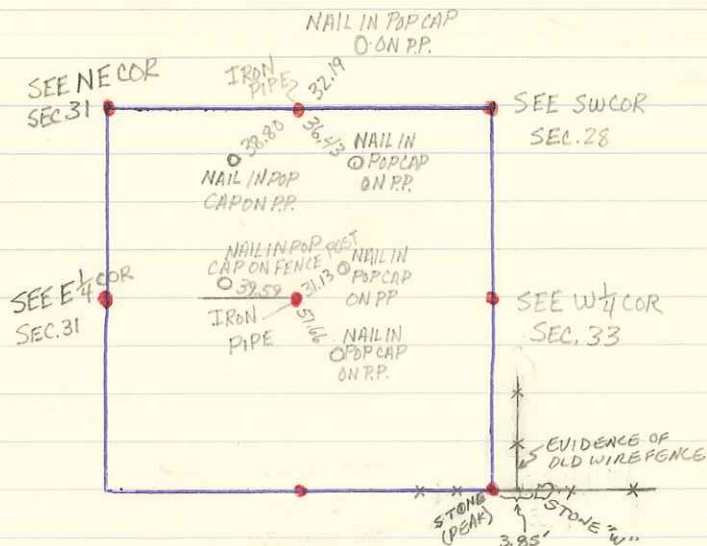 NAIL IN POP CAP
ON P.P.
SEE NE COR
SEC 31
IRON
PIPE
32.19
SEE SW COR
SEC. 28
38.80
36.43
NAIL IN POP
CAP ON P.P.
NAIL IN
POP CAP
ON P.P.
NAIL IN POP
CAP ON FENCE POST
39.59
31.13
NAIL IN
POP CAP
ON P.P
SEE E 1/4 COR
SEC. 31
IRON
PIPE
51.66
NAIL IN
POP CAP
ON P.P.
SEE W 1/4 COR
SEC. 33
EVIDENCE OF
OLD WIRE FENCE
STONE
(PEAK)
3.85'
STONE "W"